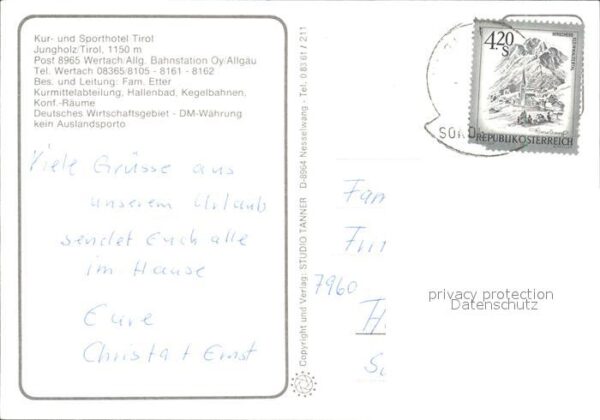 Kur- und Sporthotel Tirol
Jungholz/Tirol, 1150 m
Post 8965 Wertach/Allg. Bahnstation Oy/Allgäu
Tel. Wertach 08365/8105 - 8161 - 8162
Bes. und Leitung: Fam. Etter
Kurmittelabteilung, Hallenbad, Kegelbahnen,
Konf.-Räume
Deutsches Wirtschaftsgebiet - DM-Währung
kein Auslandsporto
Viele Grüsse aus
unserem Urlaub
sendet Euch alle
im Hause
Eure
Christa + Ernst
Copyright und Verlag: STUDIO TANNER D-8964 Nesselwang - Tel. 0 83 61 / 211
4.20
S
REPUBLIK ÖSTERREICH
Fam
7960
privacy protection
Datenschutz